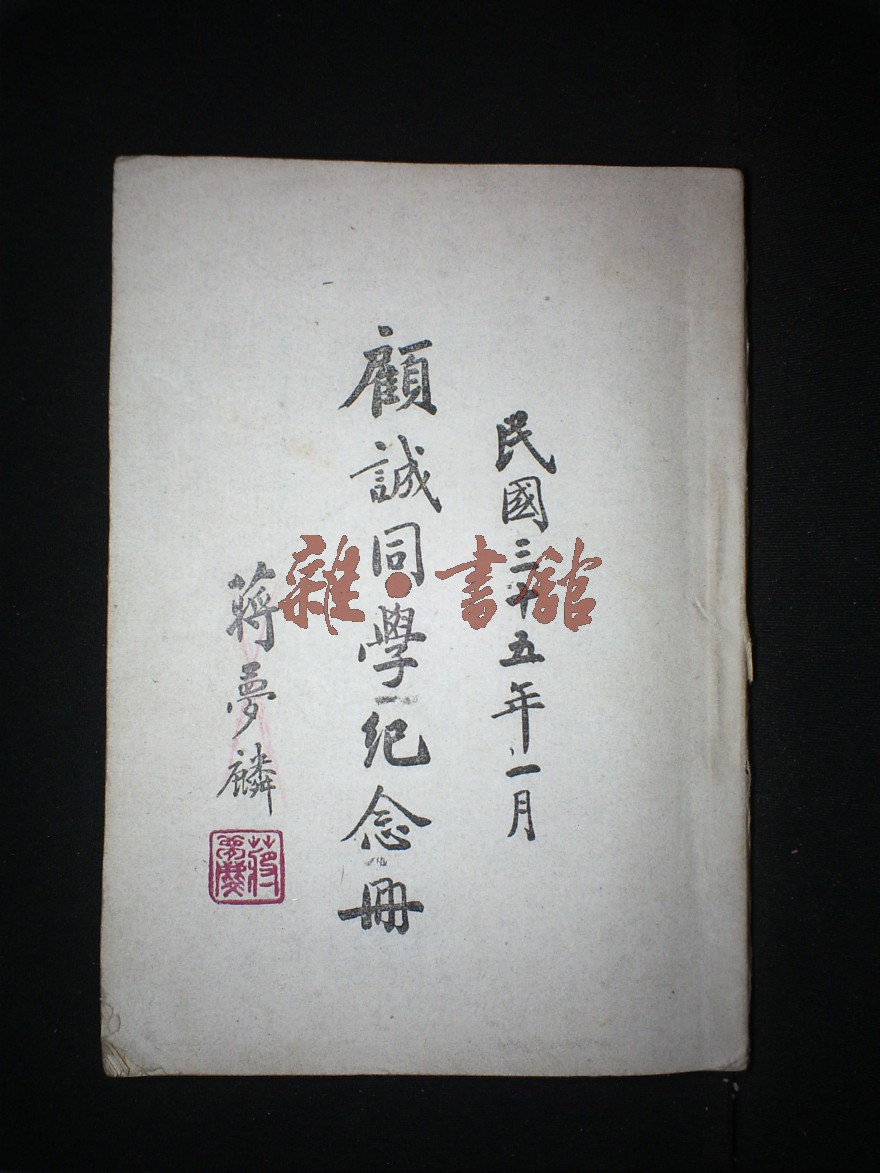 民國三十五年一月
顧誠同學紀念冊
蔣夢麟
蔣夢麟
雜·書館